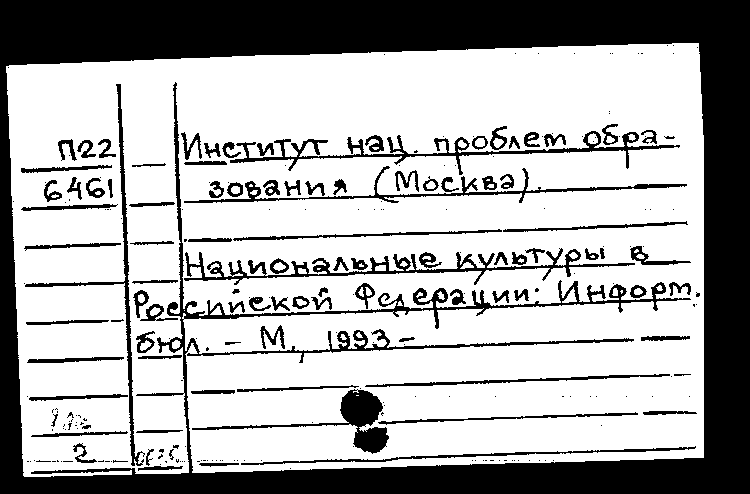 П22 Институт нац. проблем обра-
6461 зования (Москва).
Национальные культуры в
Российской Федерации: Информ.
бюл. – М., 1993 –
2